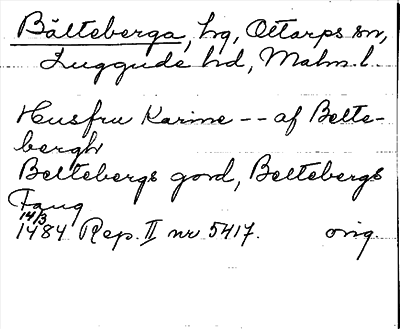 Bälteberga, hg, Ottarps sn,
Luggude hd, Malm. l.
Husfru Karine -- af Belte-
bergh
Beltebergs gord, Beltebergs
Fang
14/3
1484 Rep. II nr 5417. orig.